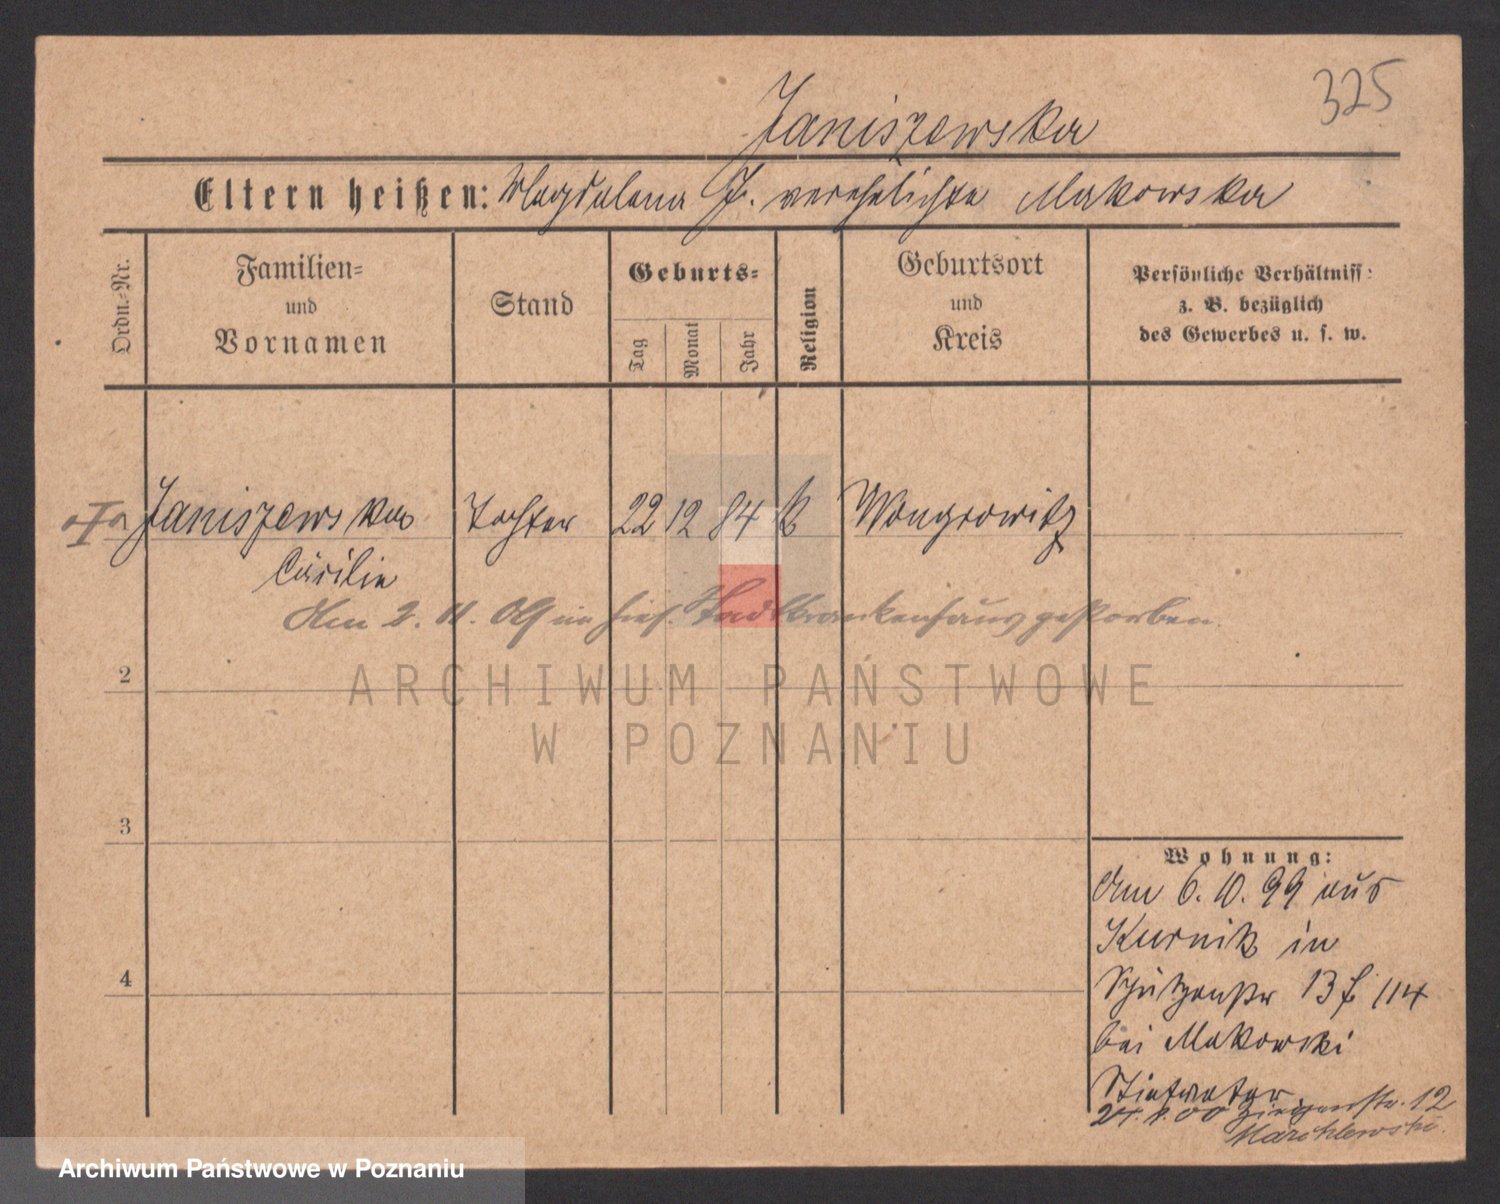 325
Janiszewska
Eltern heißen: Magdalena J. verehelichte Makowska
Ordn.-Nr.
Familien-
und
Vornamen
Stand
Geburts-
Tag
Monat
Jahr
Religion
Geburtsort
und
Kreis
Persönliche Verhältniss:
z. B. bezüglich
des Gewerbes u. s. w.
Janiszewska Tochter 22 12 84 k Wongrowitz
Cäcilie
Am 2. 11. 09 im hies. Stadtkrankenhaus gestorben.
2
ARCHIWUM PAŃSTWOWE
W POZNANIU
3
4
Wohnung:
Am 6. 10. 99 aus
Kurnik in
Schützenstr 13 f 114
bei Makowski
Stiefvater
24. 1. 00 str. 12
Marchlewski.
Archiwum Państwowe w Poznaniu